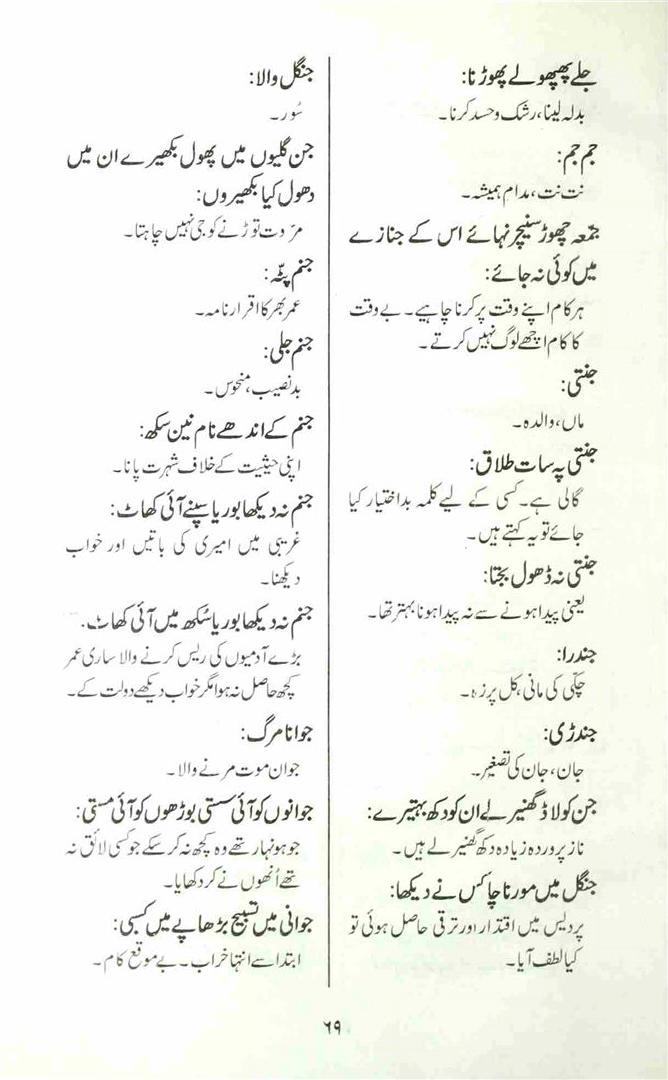 جلے پھپھولے پھوڑنا:
بدلہ لینا، رشک و حسد کرنا۔
جم جم:
نت نت، مدام ہمیشہ۔
جمّعہ چھوڑ سنیچر نہائے اس کے جنازے
میں کوئی نہ جائے:
ہر کام اپنے وقت پر کرنا چاہیے۔ بے وقت
کا کام اچھے لوگ نہیں کرتے۔
جنتی:
ماں، والدہ۔
جنتی پہ سات طلاق:
گالی ہے۔ کسی کے لیے کلمہ بد اختیار کیا
جائے تو یہ کہتے ہیں۔
جنتی نہ ڈھول بجتا:
یعنی پیدا ہونے سے نہ پیدا ہونا بہتر تھا۔
جندرا:
چکّی کی مانی، کل پرزہ۔
جندڑی:
جان، جان کی تصغیر۔
جن کو لاڈ گھنیرے ان کو دکھ بہتیرے:
ناز پروردہ زیادہ دکھ گھنیرے لے ہیں۔
جنگل میں مور ناچا کس نے دیکھا:
پردیس میں اقتدار اور ترقی حاصل ہوئی تو
کیا لطف آیا۔
جنگل والا:
سُور۔
جن گلیوں میں پھول بکھیرے ان میں
دھول کیا بکھیروں:
مرّوت توڑنے کو جی نہیں چاہتا۔
جنم پٹّہ:
عمر بھر کا اقرار نامہ۔
جنم جلی:
بدنصیب، منحوس۔
جنم کے اندھے نام نین سکھ:
اپنی حیثیت کے خلاف شہرت پانا۔
جنم نہ دیکھا بوریا سپنے آئی کھاٹ:
غریبی میں امیری کی باتیں اور خواب
دیکھنا۔
جنم نہ دیکھا بوریا سُکھ میں آئی کھاٹ:
بڑے آدمیوں کی ریس کرنے والا ساری عمر
کچھ حاصل نہ ہوا مگر خواب دیکھے دولت کے۔
جوانا مرگ:
جوان موت مرنے والا۔
جوانوں کو آئی سستی بوڑھوں کو آئی مستی:
جو ہونہار تھے وہ کچھ نہ کر سکے جو کسی لائق نہ
تھے اُنھوں نے کر دکھایا۔
جوانی میں تسبیح بڑھاپے میں کسبی:
ابتدا سے انتہا خراب۔ بے موقع کام۔
۶۹